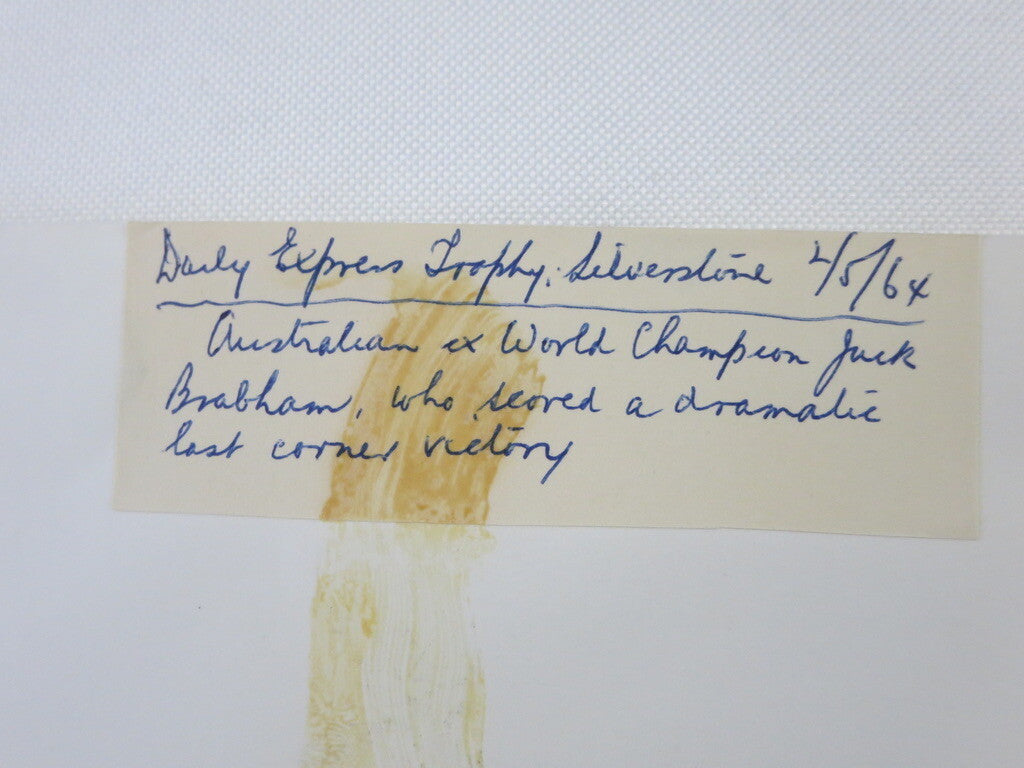 Daily Express Trophy, Silverstone 2/5/64
Australian ex World Champion Jack
Brabham, who scored a dramatic
last corner victory